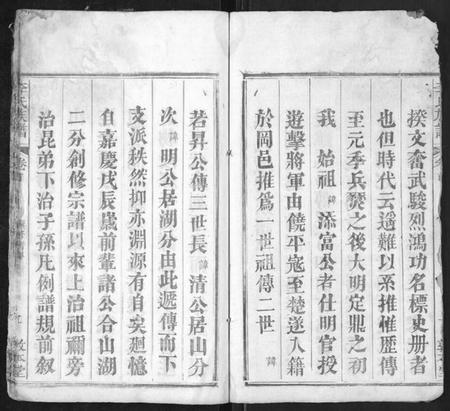 揆文奮武駿烈鴻功名標史册者
也但時代云遥難以系推惟歷傳
至元季兵燹之後大明定鼎之初
我 始祖 諱 添富公者仕明官授
遊擊將軍由饒平宼至楚遂入籍
於岡邑推爲一世祖傳二世 諱
若昇公傳三世長 諱 清公居山分
次 諱 明公居湖分由此遞傳而下
支派秩然抑亦淵源有自矣廻憶
自嘉慶戊辰歲前輩諸公合山湖
二分創修宗譜以來上治祖禰旁
治昆弟下治子孫凡例譜規前叙
李氏族譜
卷